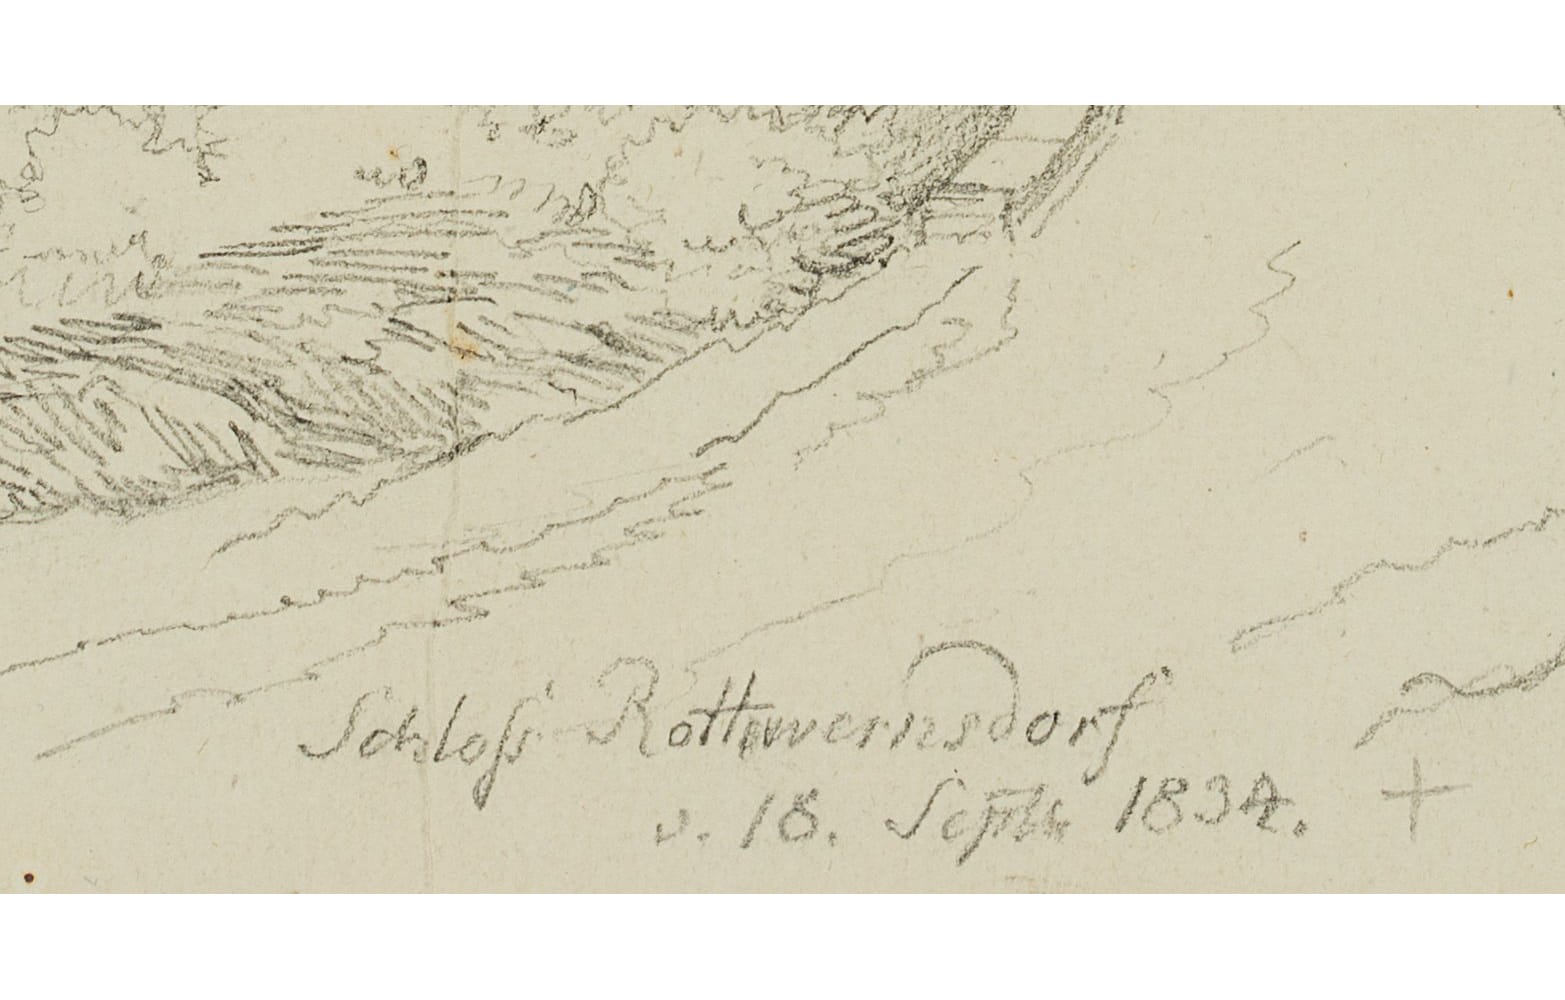 Schloß Rottwernsdorf
v. 18. Septbr 1834.